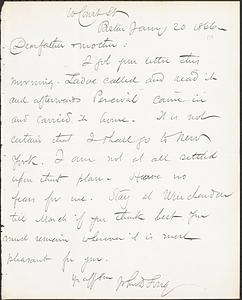 10 Court St
Boston Jany 20 1866 -
Dear father & mother:
I got your letter this
morning. Zadoc called and read it
and afterwards Percival came in
and carried it home. It is not
certain that I shall go to New
York. I am not at all settled
upon that plan. Have no
fears for me. Stay at Winchendon
till March if you think best. You
must remain where it is most
pleasant for you.
Yr affson John D Long